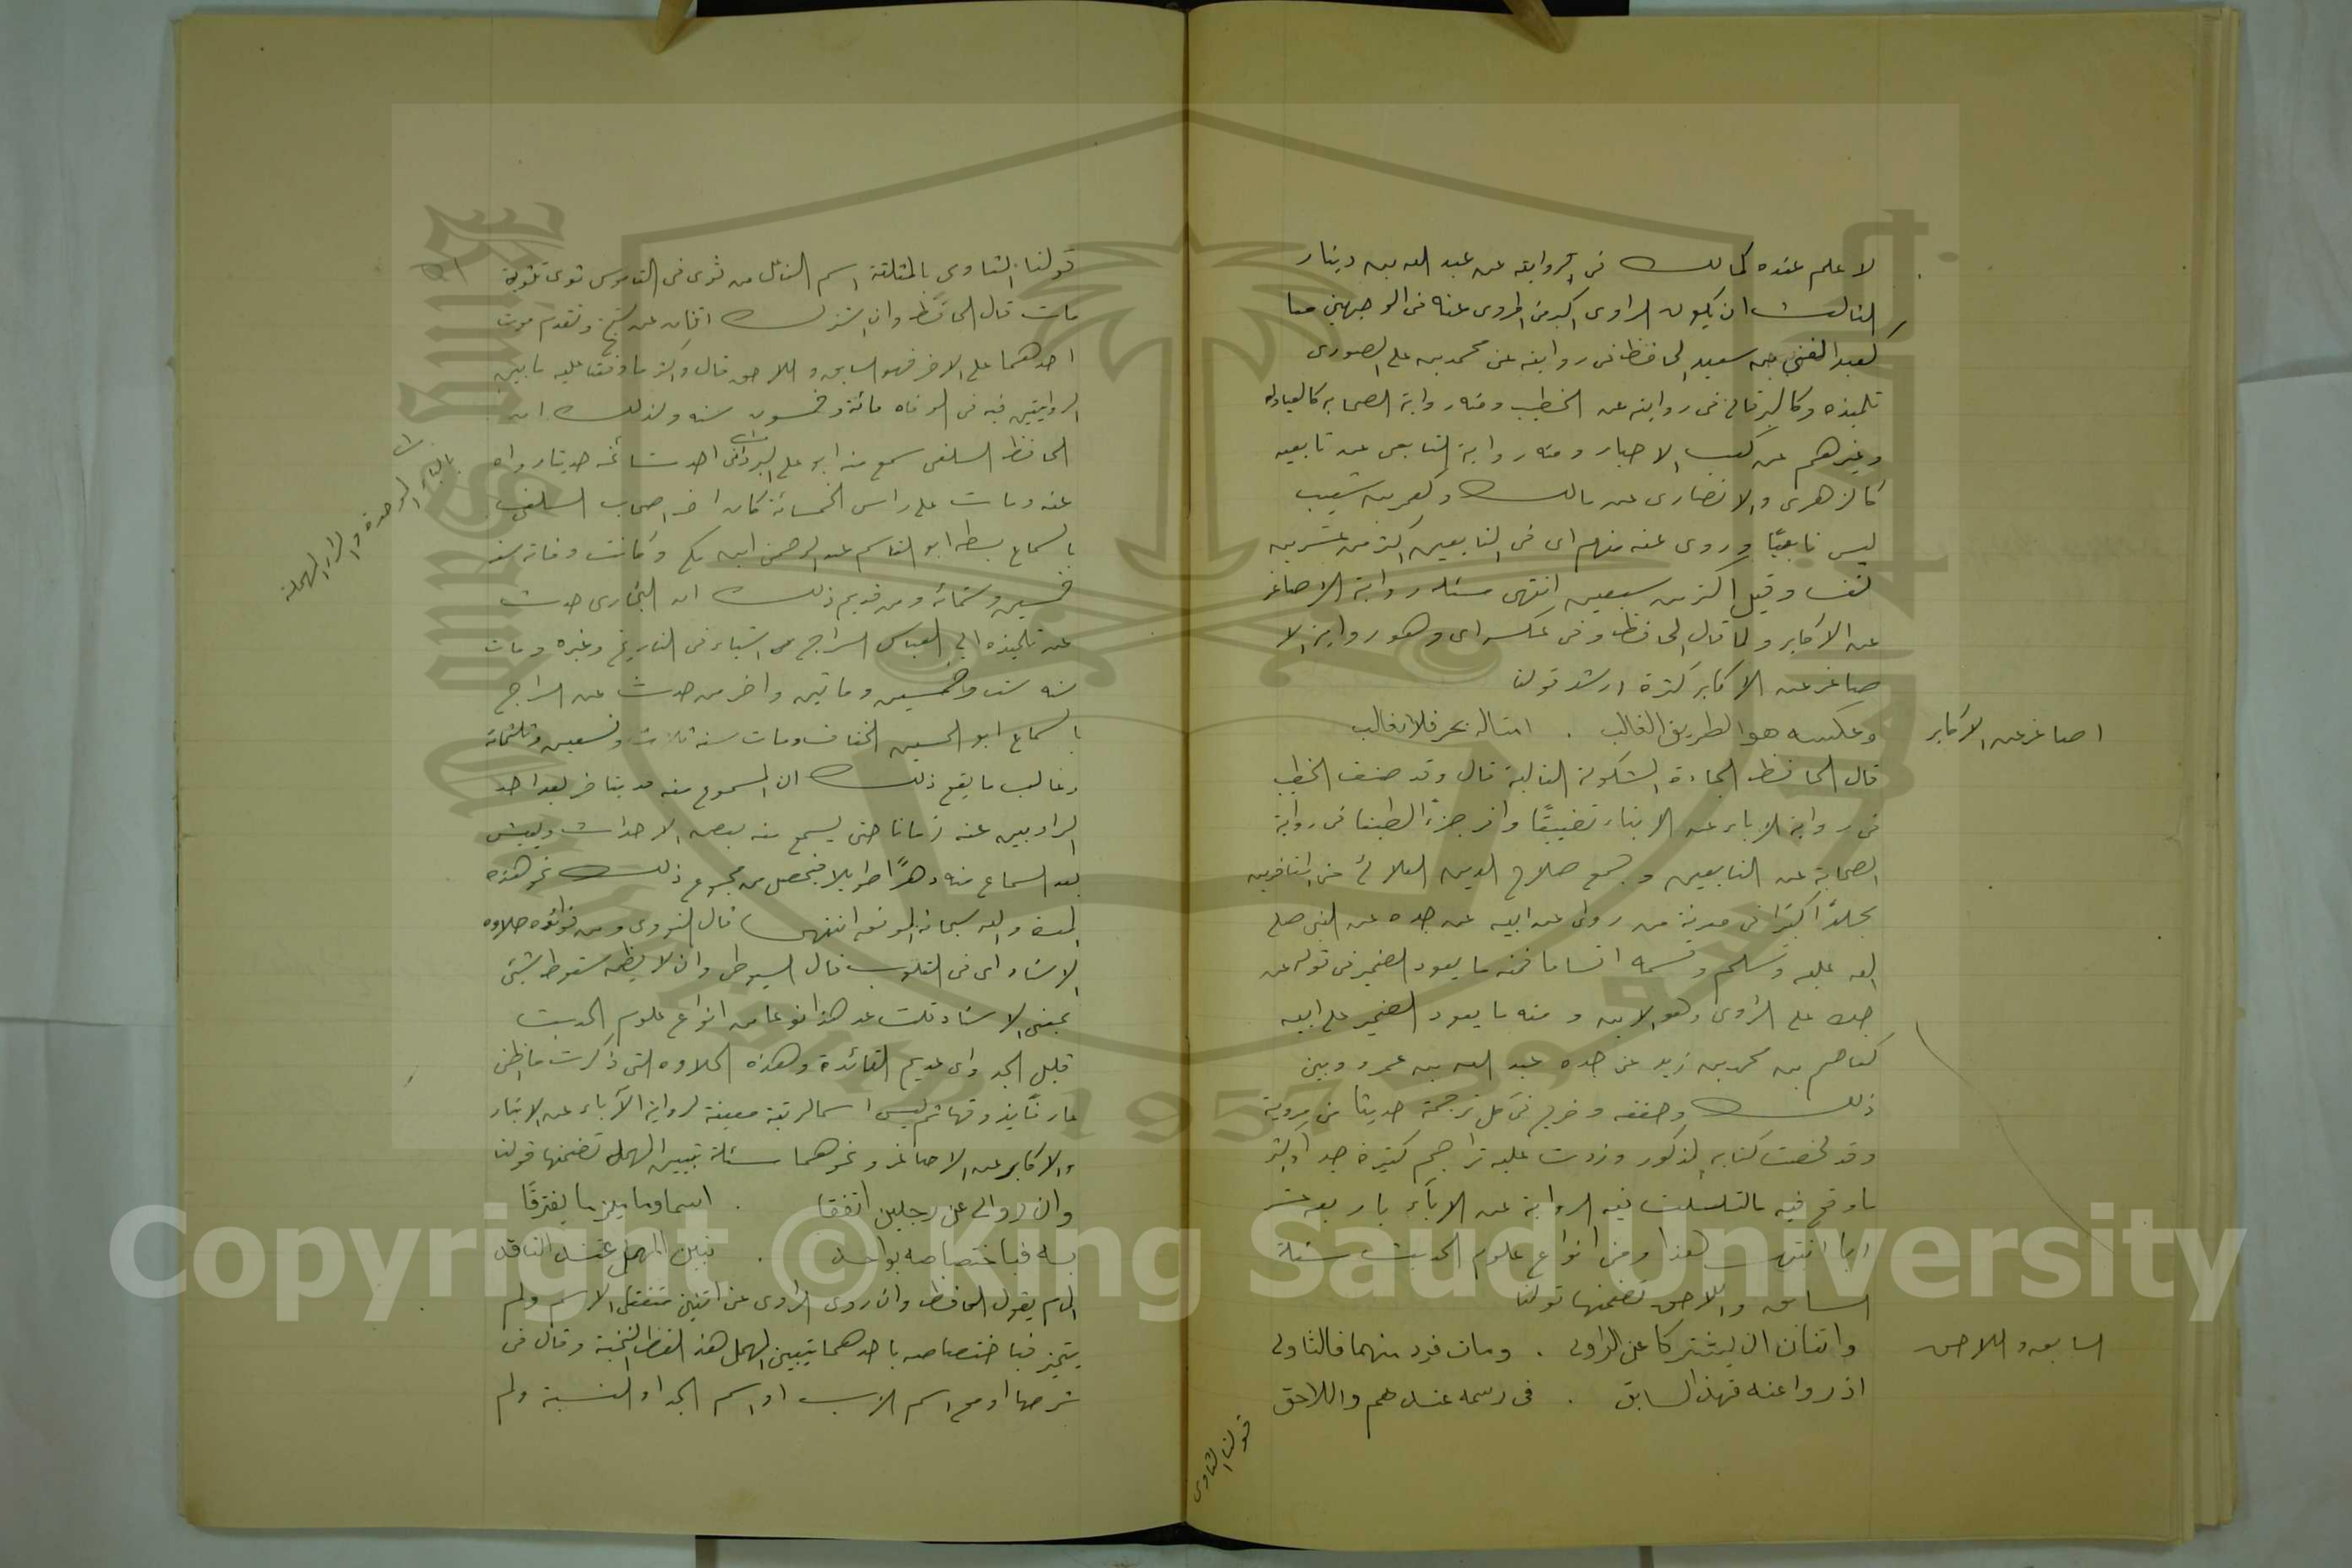 لا علم عنده كمالك فى روايته عن عبد الله بن دينار
الثالث ان يكون الراوى اكبر من المروى عنه من الوجهين معا
كعبد الغني بن سعيد الحافظ فى روايته عن محمد بن على الصورى
تلميذه وكالبرقانى فى روايته عن الخطيب ومنه رواية الصحابه كالعبادله
وغيرهم عن كعب الاحبار ومنه رواية التابعى عن تابعيه
كالزهرى والانصارى عن مالك وكعمر بن شعيب
ليس تابعيًا وروى عنه منهم اى من التابعين اكثر من عشرين
نفسا وقيل اكثر من سبعين انتهى مسئله رواية الاصاغر
عن الاكابر ولما قال الحافظ وفى عكسه اى وهو رواية الا
صاغر عن الاكابر كثرة ارشد قولنا
اصاغر عن الاكابر
وعكسه هو الطريق الغالب . امثاله بحر فلا تغالب
قال الحافظ الجادة المسلوكة الغالبة قال وقد صنف الخطيب
فى رواية الاباء عن الابناء تصنيفًا وافرد جزءًا لطيفا فى رواية
الصحابة عن التابعين وجمع صلاح الدين العلائى من المتاخرين
مجلدًا كبيرًا فى معرفة من روى عن ابيه عن جده عن النبى صلى
الله عليه وسلم وقسمه اقساما فمنه ما يعود الضمير فى قوله عن
جده على الراوى وهو الابن ومنه ما يعود الضمير على ابيه
كعاصم بن محمد بن زيد عن جده عبد الله بن عمر وبين
ذلك وحققه وخرج فى كل ترجمة حديثا من مروية
وقد لخصت كتابه المذكور وزدت عليه تراجم كثيرة جدا واكثر
ما وقع فيه ما تسلسلت فيه الرواية عن الاباء باربعة عشر
ابا انتهى هذا ومن انواع علوم الحديث مسئلة
السابق واللاحق تضمنها قولنا
السابق واللاحق
واثنان ان يشتركا عن الراوى . ومات فرد منهما فالثاوى
اذ روا عنه فهذا السابق . فى رسمه عندهم واللاحق
قولنا الثاوى
قولنا الثاوى بالمثلثة اسم الفاعل من ثوى فى القاموس ثوى تثوية
مات قال الحافظ وان اشترك اثنان عن شيخ وتقدم موت
احدهما على الاخر فهو السابق واللاحق قال واكثر ما وقفنا عليه ما بين
الروايتين فيه فى الوفاه مائة وخمسون سنه وذلك ان
الحافظ السلفى سمع منه ابو على البردانى احد مشائخه حديثا رواه
بالباء الموحدة والراء المهملة
عنه ومات على راس الخمسائة كان اخر اصحاب السلفى
بالسماع سبطه ابو القاسم عبد الرحمن ابن مكى وكانت وفاته سنه
خمسين وستمائه ومن قديم ذلك ان البخارى حدث
عن تلميذه ابى العباس السراج اشياء فى التاريخ وغيره ومات
سنه ست وخمسين وماتين واخر من حدث عن السراج
بالسماع ابو الحسين الخفاف ومات سنه ثلاث وتسعين وثلثمائة
وغالب ما يقع ذلك ان المسموع منه قد يتاخر بعد احد
الراويين عنه زمانا حتى يسمع منه بعض الاحداث ويعيش
بعد السماع منه دهرًا طويلا فيحصل من مجموع ذلك نحو هذه
المدة والله سبحانه الموفق انتهى قال النووى ومن فوائده حلاوه
الاسناد اى فى القلوب قال السيوطى وان لا يظن سقوط شيئ
بمعنى الاسناد قلت عد هذا نوعا من انواع علوم الحديث
قليل الجدواى عديم الفائدة وهذه الحلاوه التى ذكرت ما اظن
عارفًا يذوقها ثم ليس اسما لرتبة معينة لرواية الآباء عن الابناء
والاكابر عن الاصاغر ونحوهما مسئلة تبيين المهمل تضمنها قولنا
وان روالى عن رجلين اتفقا . اسما وما يميز ما يفترقا
به فباختصاصه بواحد . تبين المهمل عند الناقد
يقول الحافظ وان روى الراوى عن اثنين متفقى الاسم ولم
يتميز فباختصاصه باحدهما يتبين المهمل هذا لفظ النخبة وقال فى
شرحها او مع اسم الاب او اسم الجد او النسبة ولم